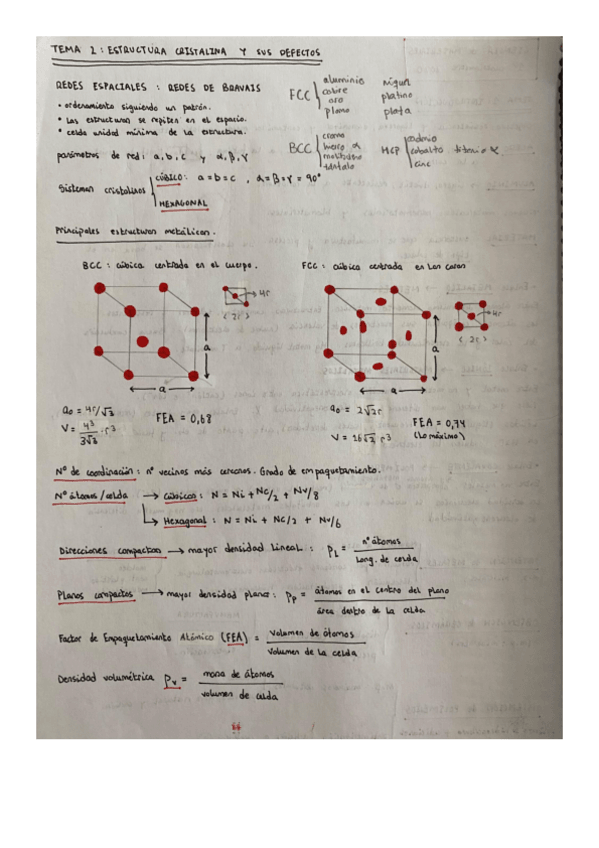 TEMA 2: ESTRUCTURA CRISTALINA Y SUS DEFECTOS
REDES ESPACIALES: REDES DE BRAVAIS
• ordenamiento siguiendo un patrón.
• Las estructuras se repiten en el espacio.
• celda unidad mínima de la estructura.
FCC
aluminio niquel
cobre platino
oro plata
plomo
BCC
cromo
hierro α
molibdeno
tántalo
HCP
cobalto titanio α
cinc
parámetros de red: a, b, c y α, β, γ
Sistemas cristalinos
CÚBICO: a = b = c , α = β = γ = 90°
HEXAGONAL
Principales estructuras metálicas.
BCC: cúbica centrada en el cuerpo.
FCC: cúbica centrada en las caras
4r
2r
a
a
4r
2r
a
a
a0 = 4r/√3
V = 4³/3√3 · r³
FEA = 0,68
a0 = 2√2r
V = 16√2 r³
FEA = 0,74
(Lo máximo)
Nº de coordinación: nº vecinos más cercanos. Grado de empaquetamiento.
Nº átomos/celda → Cúbicos: N = Ni + Nc/2 + Nv/8
→ Hexagonal: N = Ni + Nc/2 + Nv/6
Direcciones compactas → mayor densidad lineal: ρL = nº átomos / Long. de celda
Planos compactos → mayor densidad plana: ρp = átomos en el centro del plano / área dentro de la celda
Factor de Empaquetamiento Atómico (FEA) = Volumen de átomos / Volumen de la celda
Densidad volumétrica ρv = masa de átomos / volumen de celda